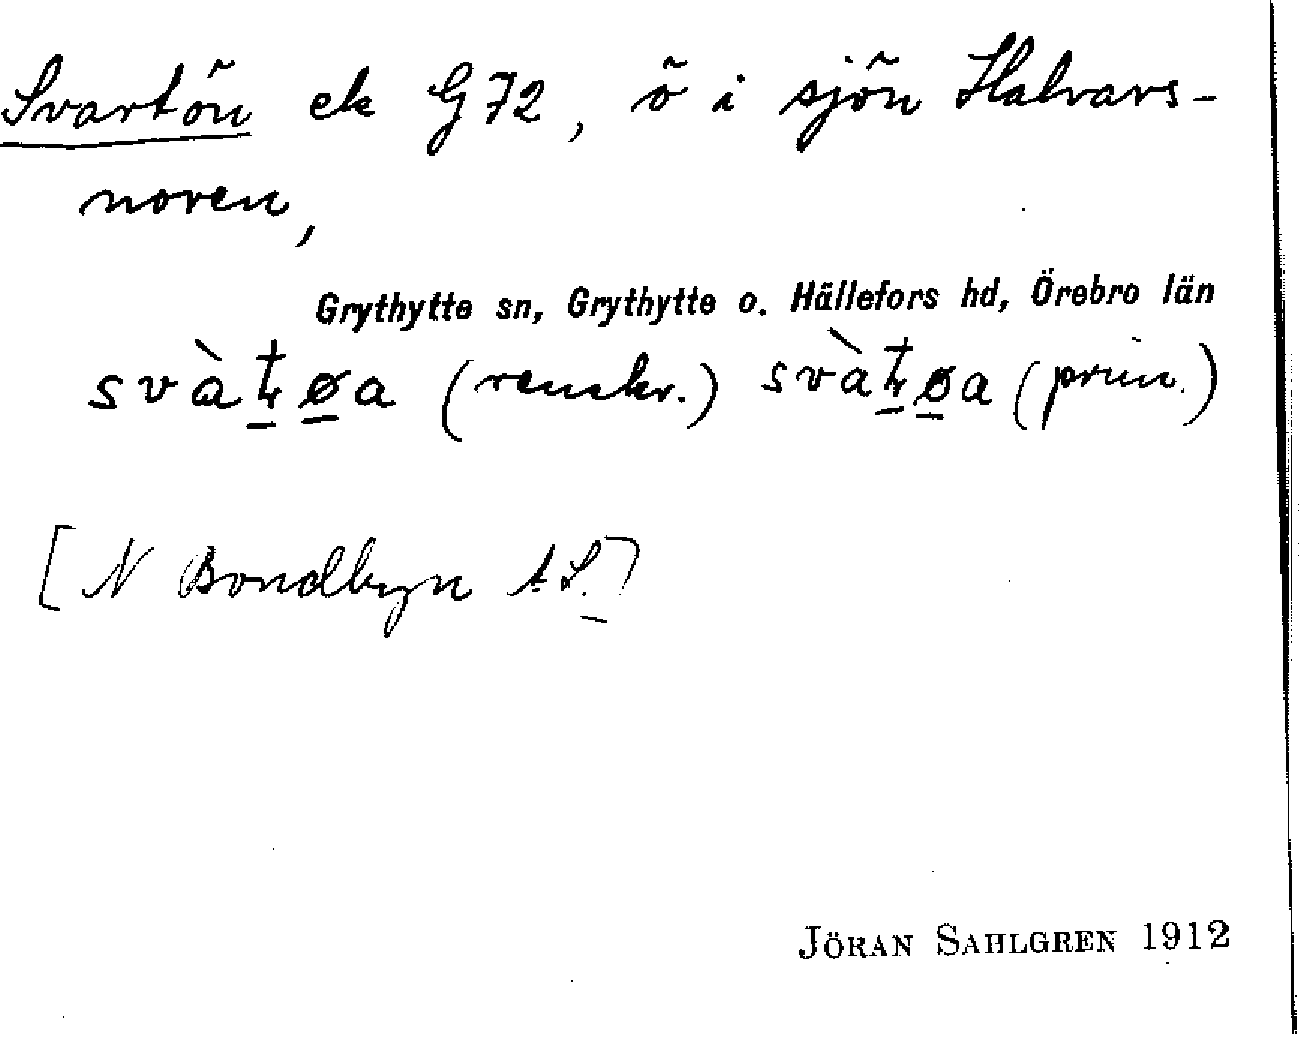 Svartön ek G72, ö i sjön Halvars-
noren,
Grythytte sn, Grythytte o. Hällefors hd, Örebro län
svàt̠ø̠a (renskr.) svàt̠ø̠a (prim.)
[N Bondbyn AS.]
JÖRAN SAHLGREN 1912